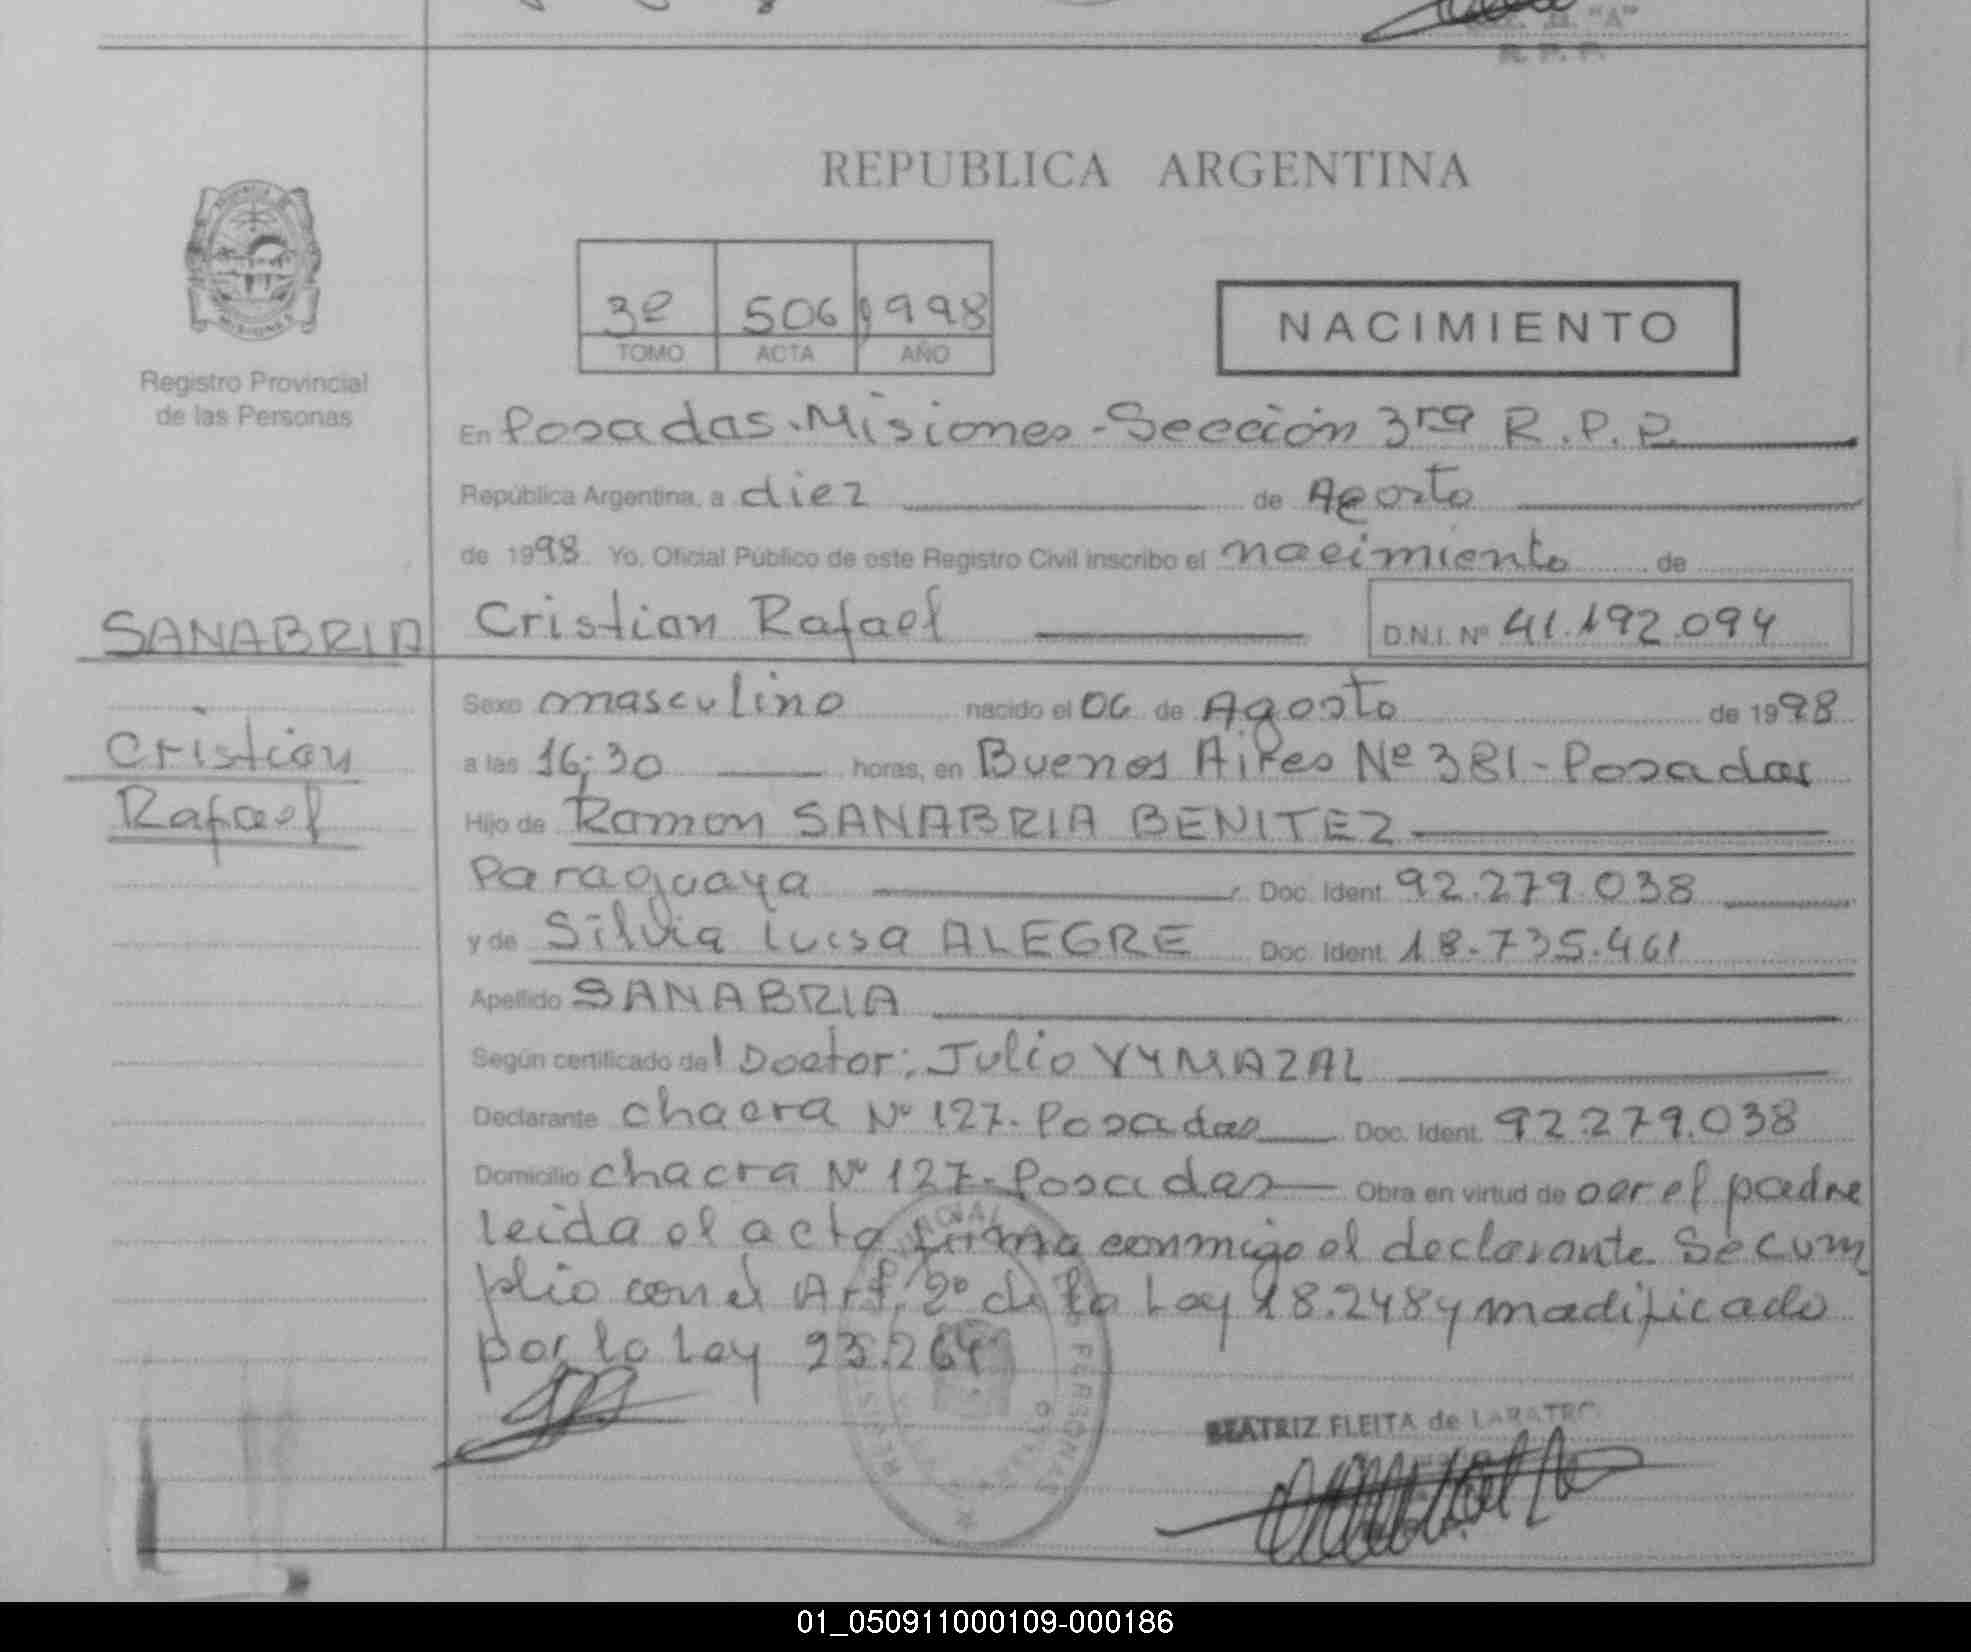 "A"
R. P. P.
REPUBLICA ARGENTINA
3º 506 1998
TOMO ACTA AÑO
NACIMIENTO
MISIONES
Registro Provincial
de las Personas
En Posadas-Misiones-Sección 3ra R.P.P.
República Argentina, a diez de Agosto
de 1998 Yo, Oficial Público de este Registro Civil inscribo el nacimiento de
SANABRIA Cristian Rafael D.N.I. Nº 41.192.094
Sexo masculino nacido el 06 de Agosto de 1998
Cristian
a las 16;30 horas, en Buenos Aires Nº 381-Posadas
Rafael
Hijo de Ramon SANABRIA BENITEZ
Paraguaya Doc. Ident. 92.279.038
y de Silvia Luisa ALEGRE Doc. Ident. 18.735.461
Apellido SANABRIA
Según certificado del Doctor: Julio VYMAZAL
Declarante chacra Nº 127-Posadas Doc. Ident. 92.279.038
Domicilio chacra Nº 127-Posadas Obra en virtud de ser el padre
leida el acta firma conmigo el declarante. Se cum
plio con el Art. 2º de la Ley 18.248 y modificado
por la Ley 23.264
PERSONAS
BEATRIZ FLEITA de
01_050911000109-000186